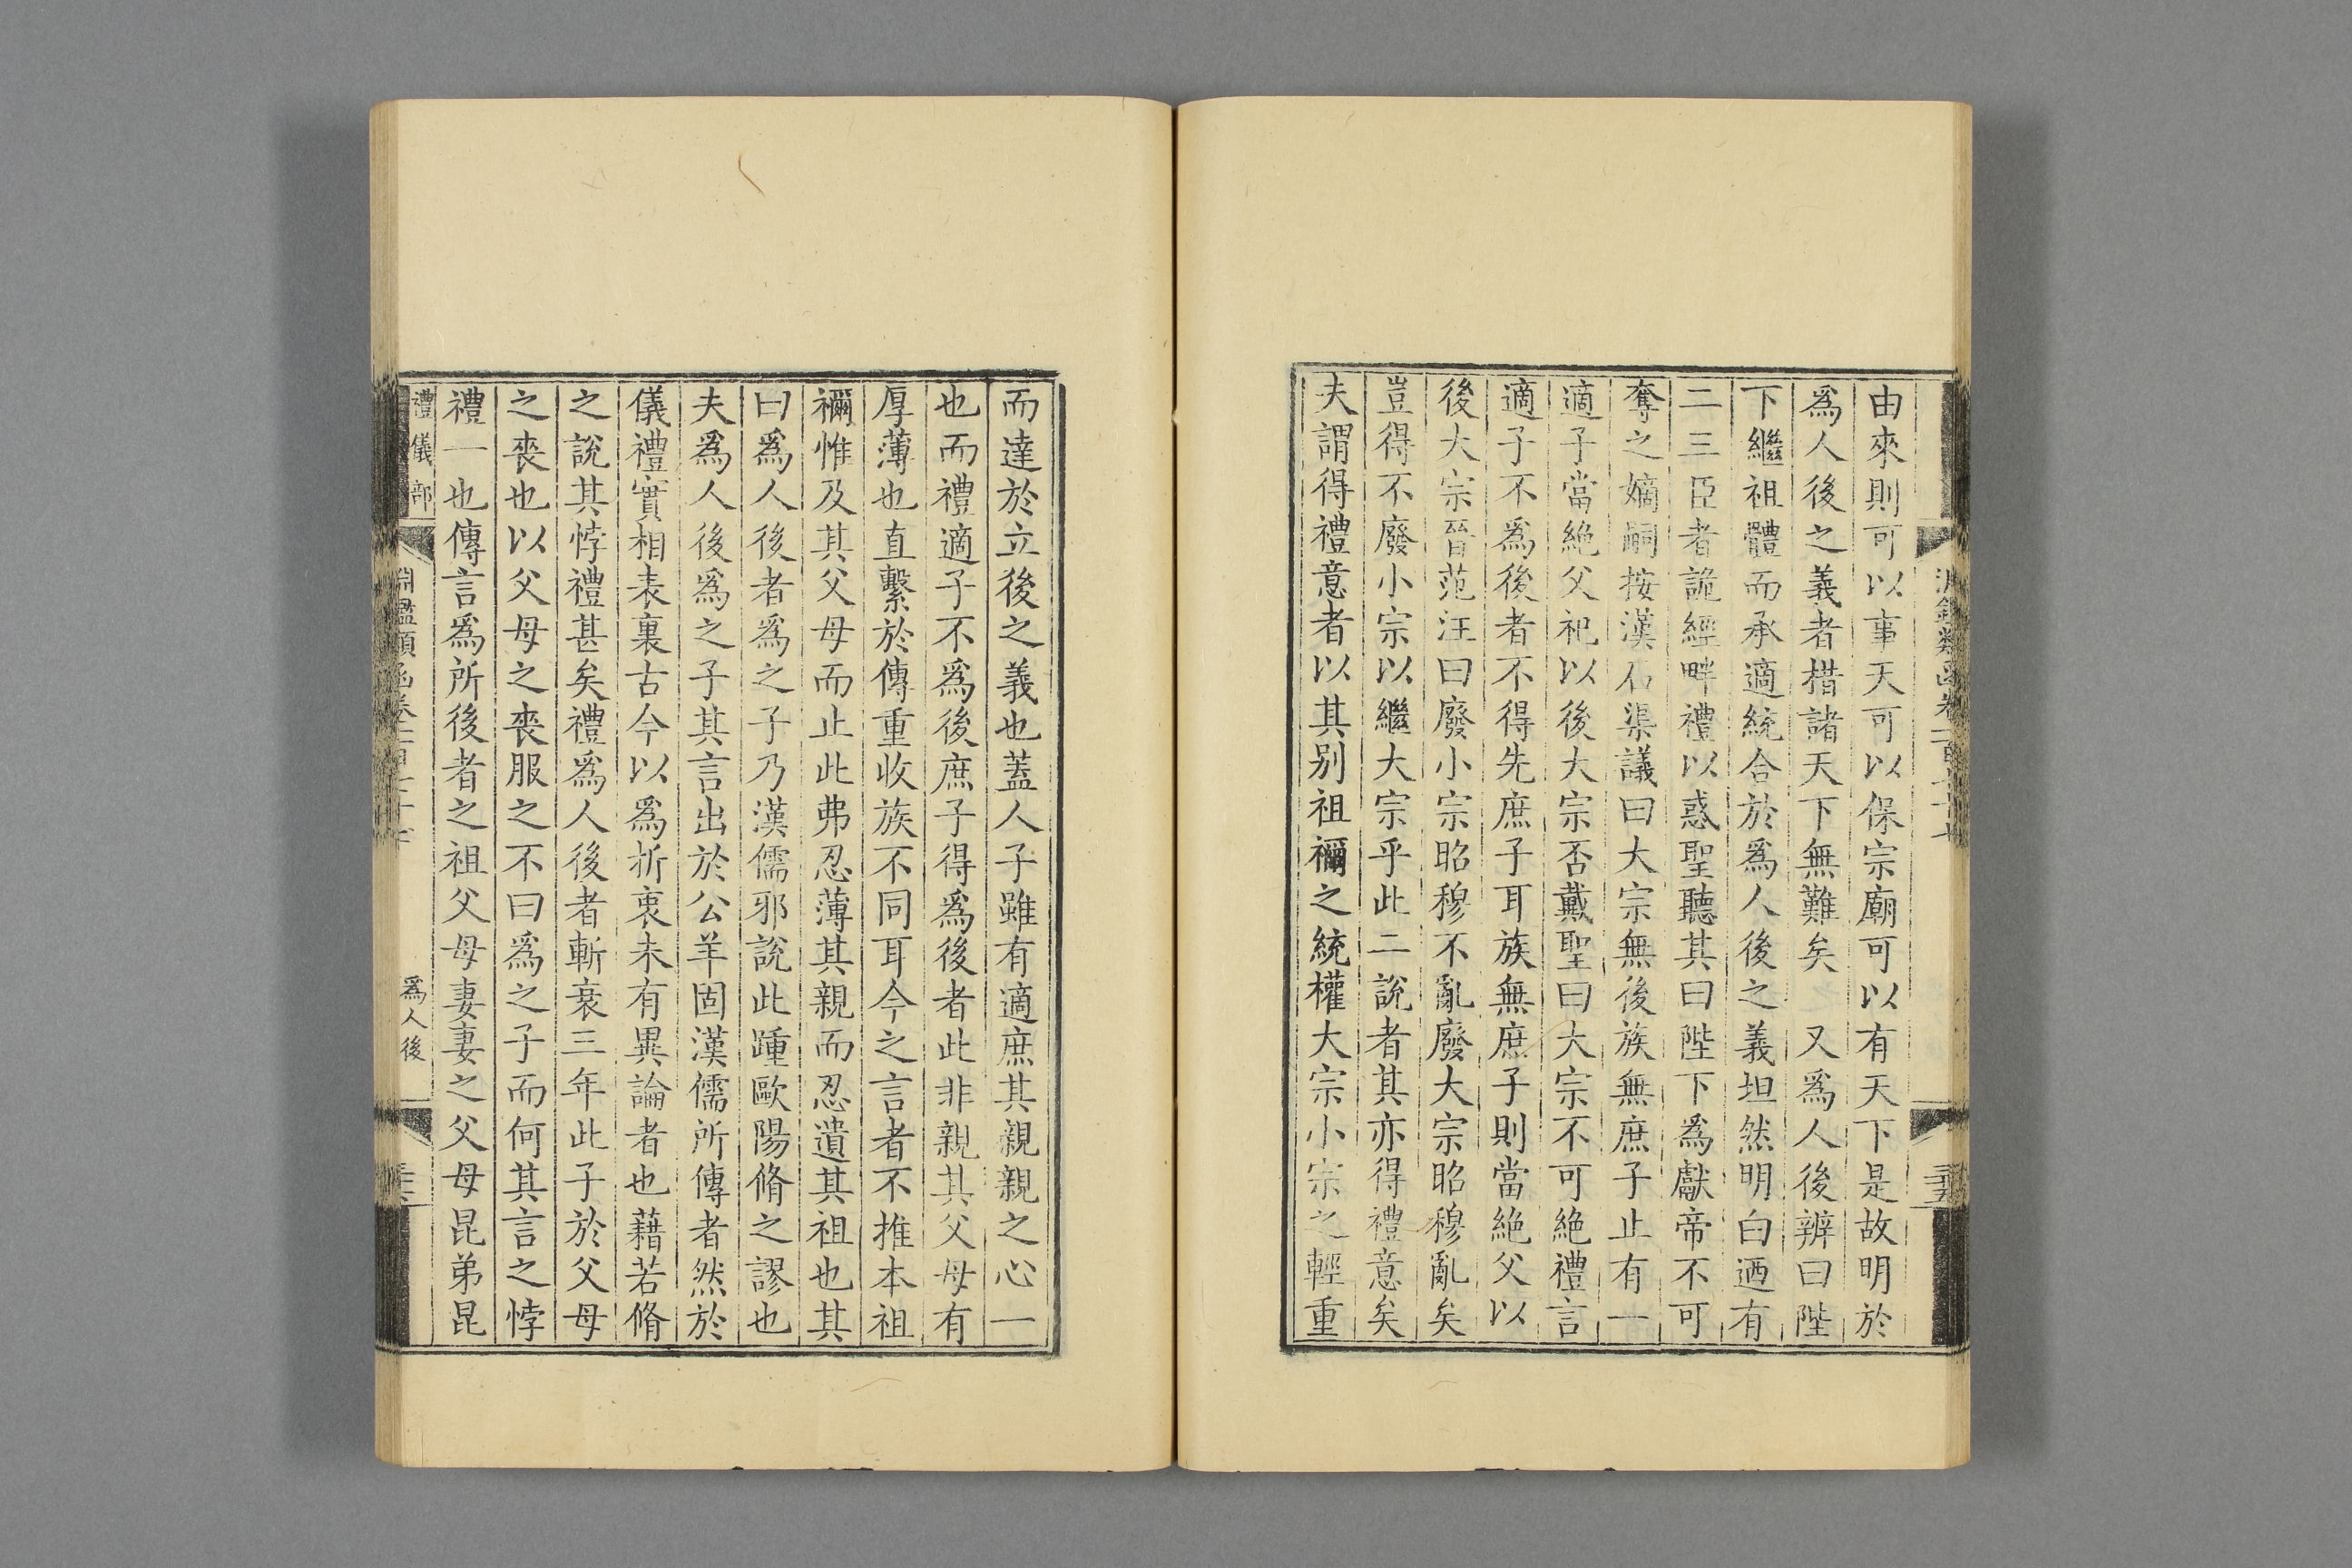 由來則可以事天可以保宗廟可以有天下是故明於
爲人後之義者措諸天下無難矣 又爲人後辨曰陛
下繼祖體而承適統合於爲人後之義坦然明白迺有
二三臣者詭經畔禮以惑聖聽其曰陛下爲獻帝不可
奪之嫡嗣按漢石渠議曰大宗無後族無庶子止有一
適子當絶父祀以後大宗否戴聖曰大宗不可絶禮言
適子不爲後者不得先庶子耳族無庶子則當絶父以
後大宗晉范汪曰廢小宗昭穆不亂廢大宗昭穆亂矣
豈得不廢小宗以繼大宗乎此二說者其亦得禮意矣
夫謂得禮意者以其别祖禰之統權大宗小宗之輕重
而達於立後之義也蓋人子雖有適庶其親親之心一
也而禮適子不爲後庶子得爲後者此非親其父母有
厚薄也直繫於傳重收族不同耳今之言者不推本祖
禰惟及其父母而止此弗忍薄其親而忍遺其祖也其
曰爲人後者爲之子乃漢儒邪說此踵歐陽脩之謬也
夫爲人後爲之子其言出於公羊固漢儒所傳者然於
儀禮實相表裏古今以爲折衷未有異論者也藉若脩
之說其悖禮甚矣禮爲人後者斬衰三年此子於父母
之喪也以父母之喪服之不曰爲之子而何其言之悖
禮一也傳言爲所後者之祖父母妻妻之父母昆弟昆
禮儀部
爲人後